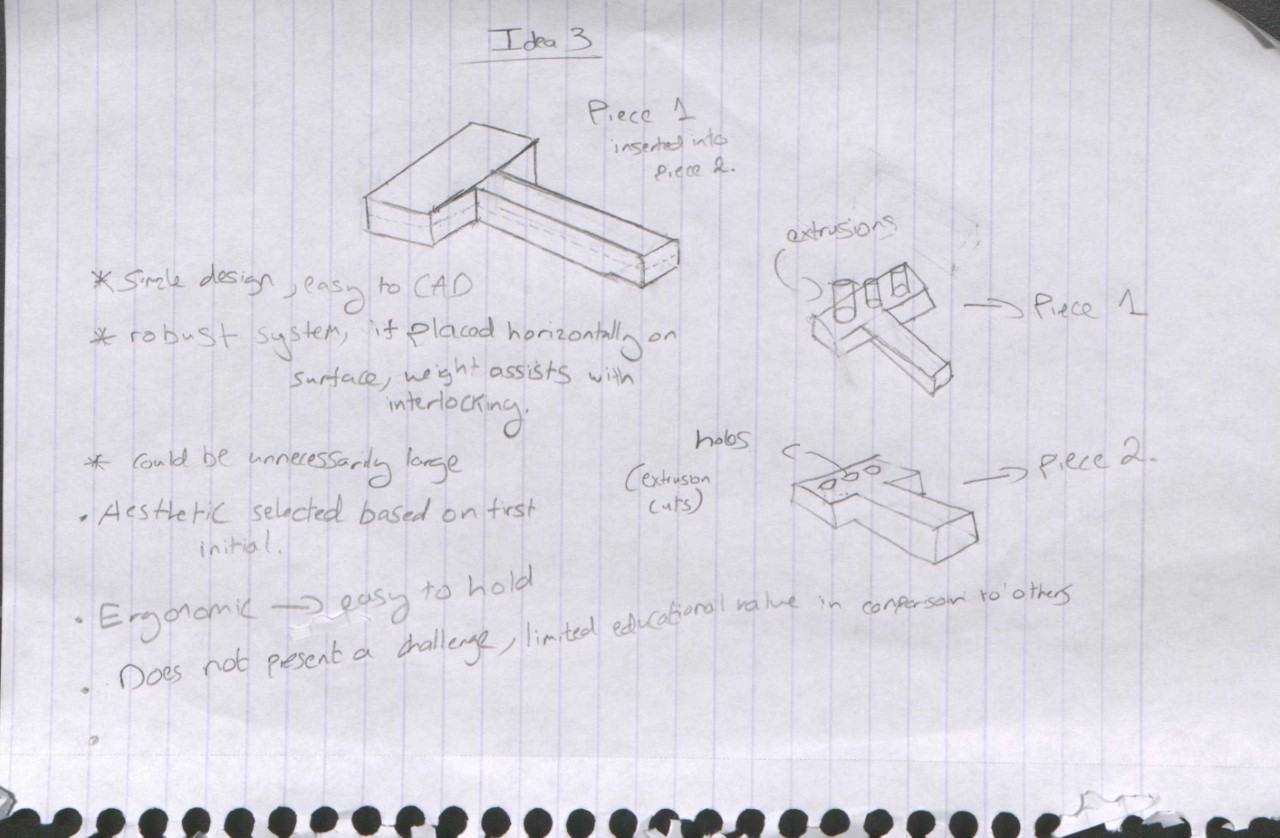 Idea 3
Piece 1
inserted into
piece 2.
extrusions
Piece 1
* Simple design, easy to CAD
* robust system, if placed horizontally on
surface, weight assists with
interlocking.
holes
(extrusion
cuts)
Piece 2.
* Could be unnecessarily large
. Aesthetic selected based on first
initial.
. Ergonomic → easy to hold
. Does not present a challenge, limited educational value in comparson to others
.